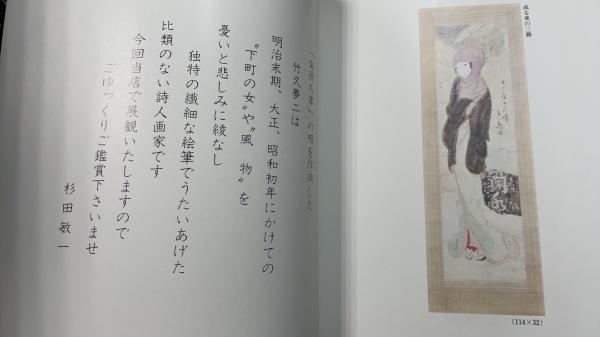 或る夜の三勝
(114×32)
「宵待ち草」の唄を作詞した
竹久夢二は
明治末期、大正、昭和初年にかけての
〝下町の女〟や〝風 物〟を
憂いと悲しみに綾なし
独特の繊細な絵筆でうたいあげた
比類のない詩人画家です
今回当店で展観いたしますので
ごゆっくりご鑑賞下さいませ
杉田敏一